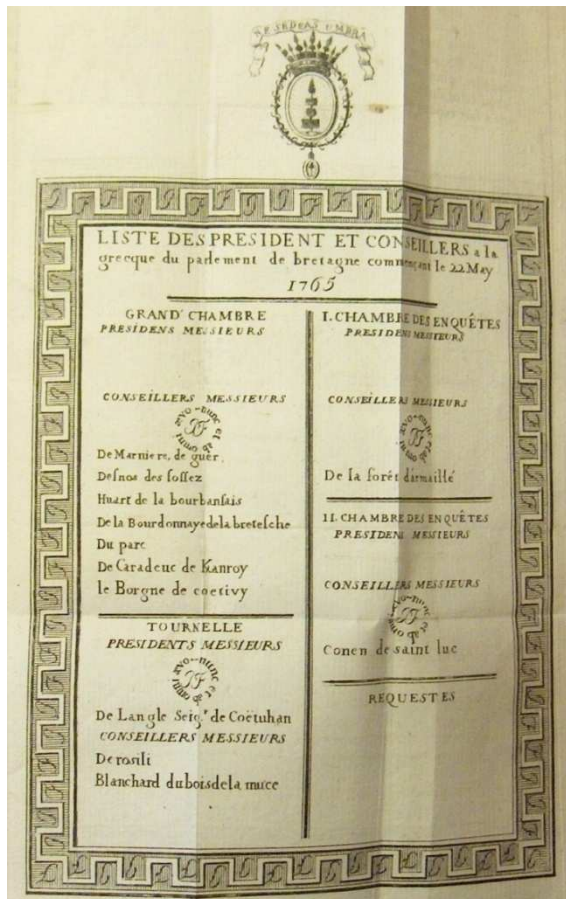 SE SEDERS UMBRA
LISTE DES PRESIDENT ET CONSEILLERS a la
grecque du parlement de bretagne commençant le 22 May
1765
GRAND' CHAMBRE
PRESIDENS MESSIEURS
CONSEILLERS MESSIEURS
JF
De Marniere, de guer,
Desnos des fossez
Huart de la bourbansais
De la Bourdonnaye de la bretesche
Du parc
De Caradeuc de Kanroy
le Borgne de coetivy
TOURNELLE
PRESIDENTS MESSIEURS
JF
De Langle Seig.r de Coëtuhan
CONSEILLERS MESSIEURS
De rosili
Blanchard du bois de la muce
I. CHAMBRE DES ENQUÊTES
PRESIDENS MESSIEURS
CONSEILLERS MESSIEURS
JF
De la forêt darmaillé
II. CHAMBRE DES ENQUÊTES
PRESIDENS MESSIEURS
CONSEILLERS MESSIEURS
Conen de saint luc
REQUESTES